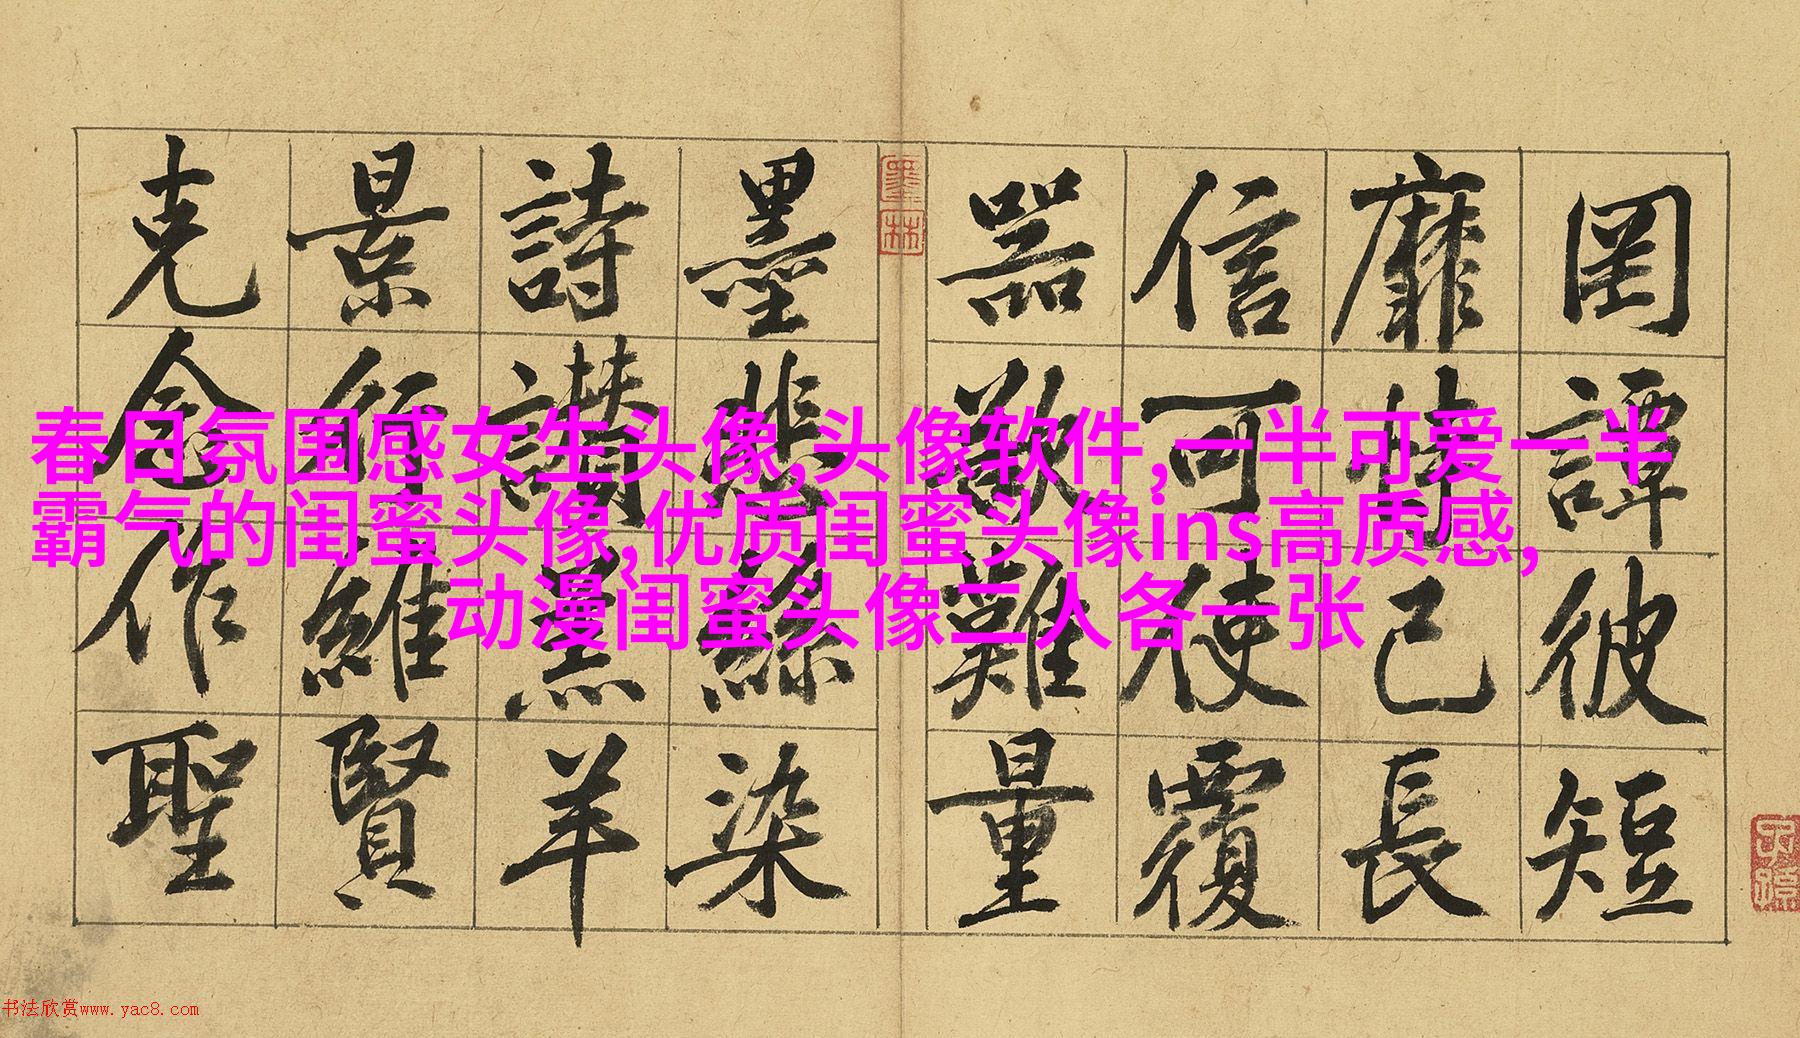 罔談彼短
靡恃己長
信可使覆
器欲難量
墨悲絲染
詩讃羔羊
景行維賢
克念作聖
墨林
春日氛围感女生头像,头像软件,一半可爱一半
霸气的闺蜜头像,优质闺蜜头像ins高质感,
动漫闺蜜头像二人各一张
书法欣赏www.yac8.com